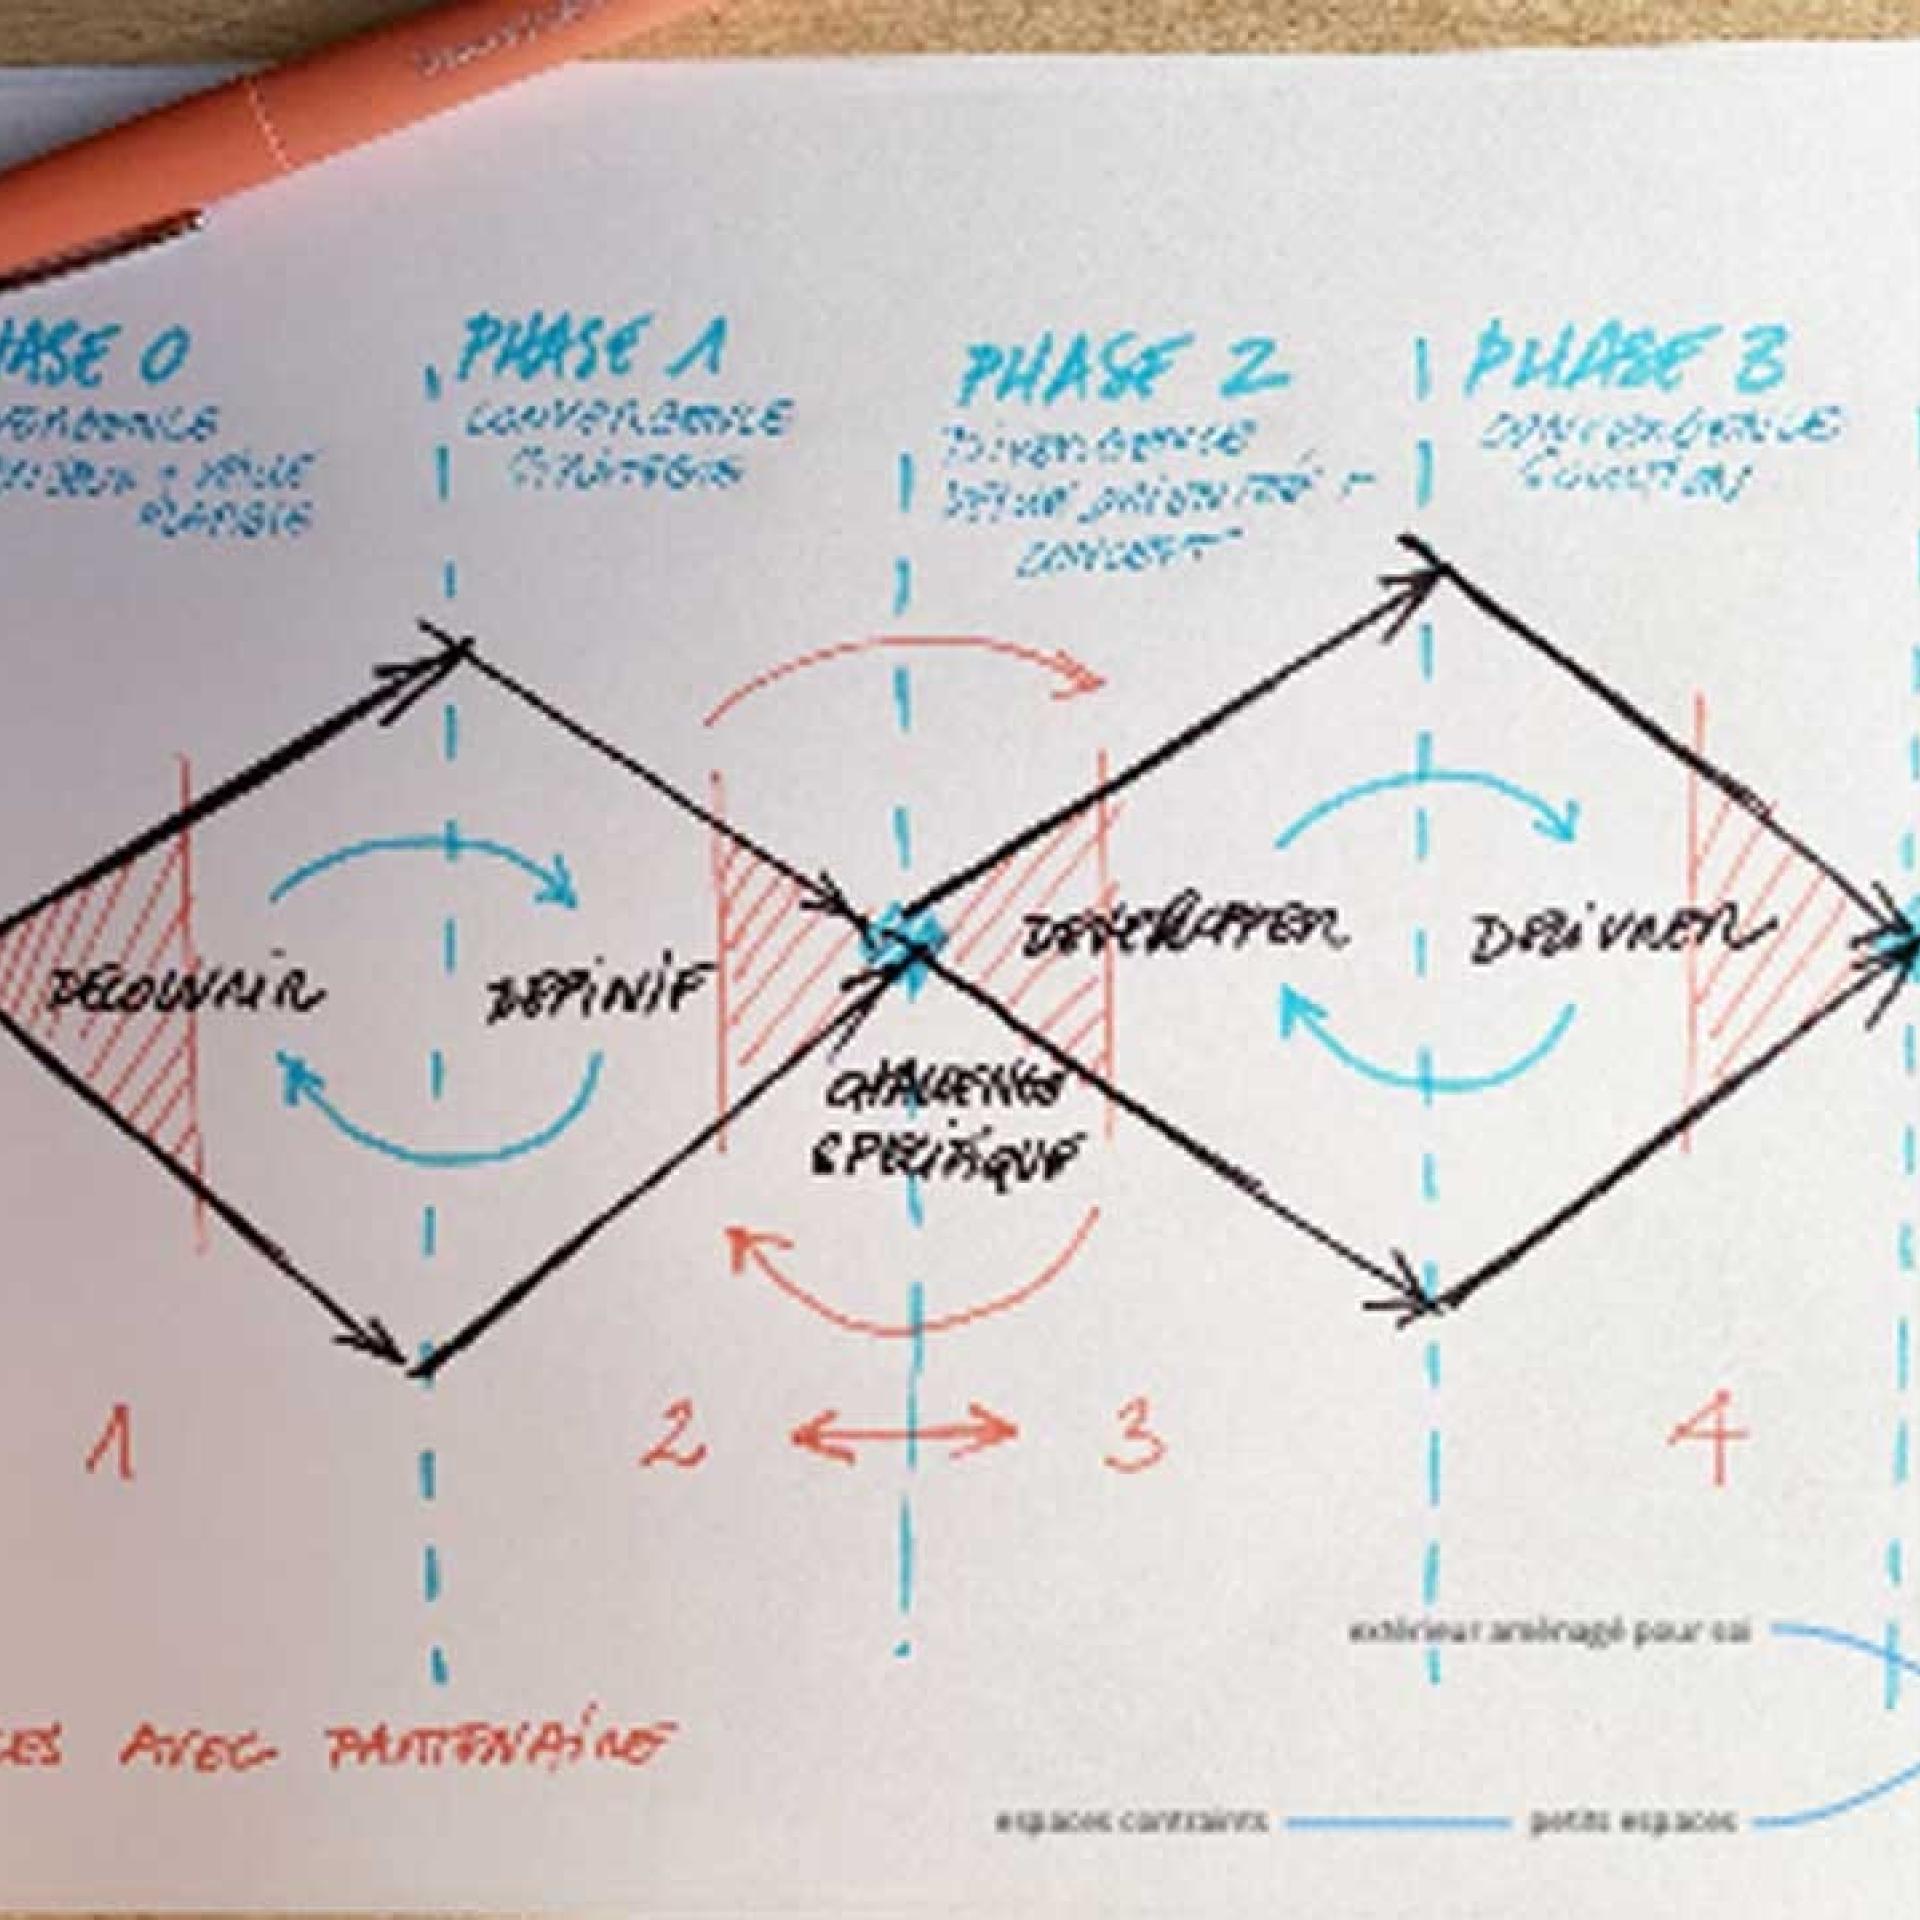 HASE 0
PHASE 1
CONVERGENCE
STRATÉGIE
PHASE 2
DIVERGENCE
CONCEPT
PHASE 3
CONVERGENCE
SOLUTION
DECOUVRIR
DEFINIR
DEVELOPPER
DELIVRER
CHALLENGE
SPECIFIQUE
1
2
3
4
extérieur aménagé pour soi
ES AVEC PARTENAIRE
espaces contraints
petits espaces